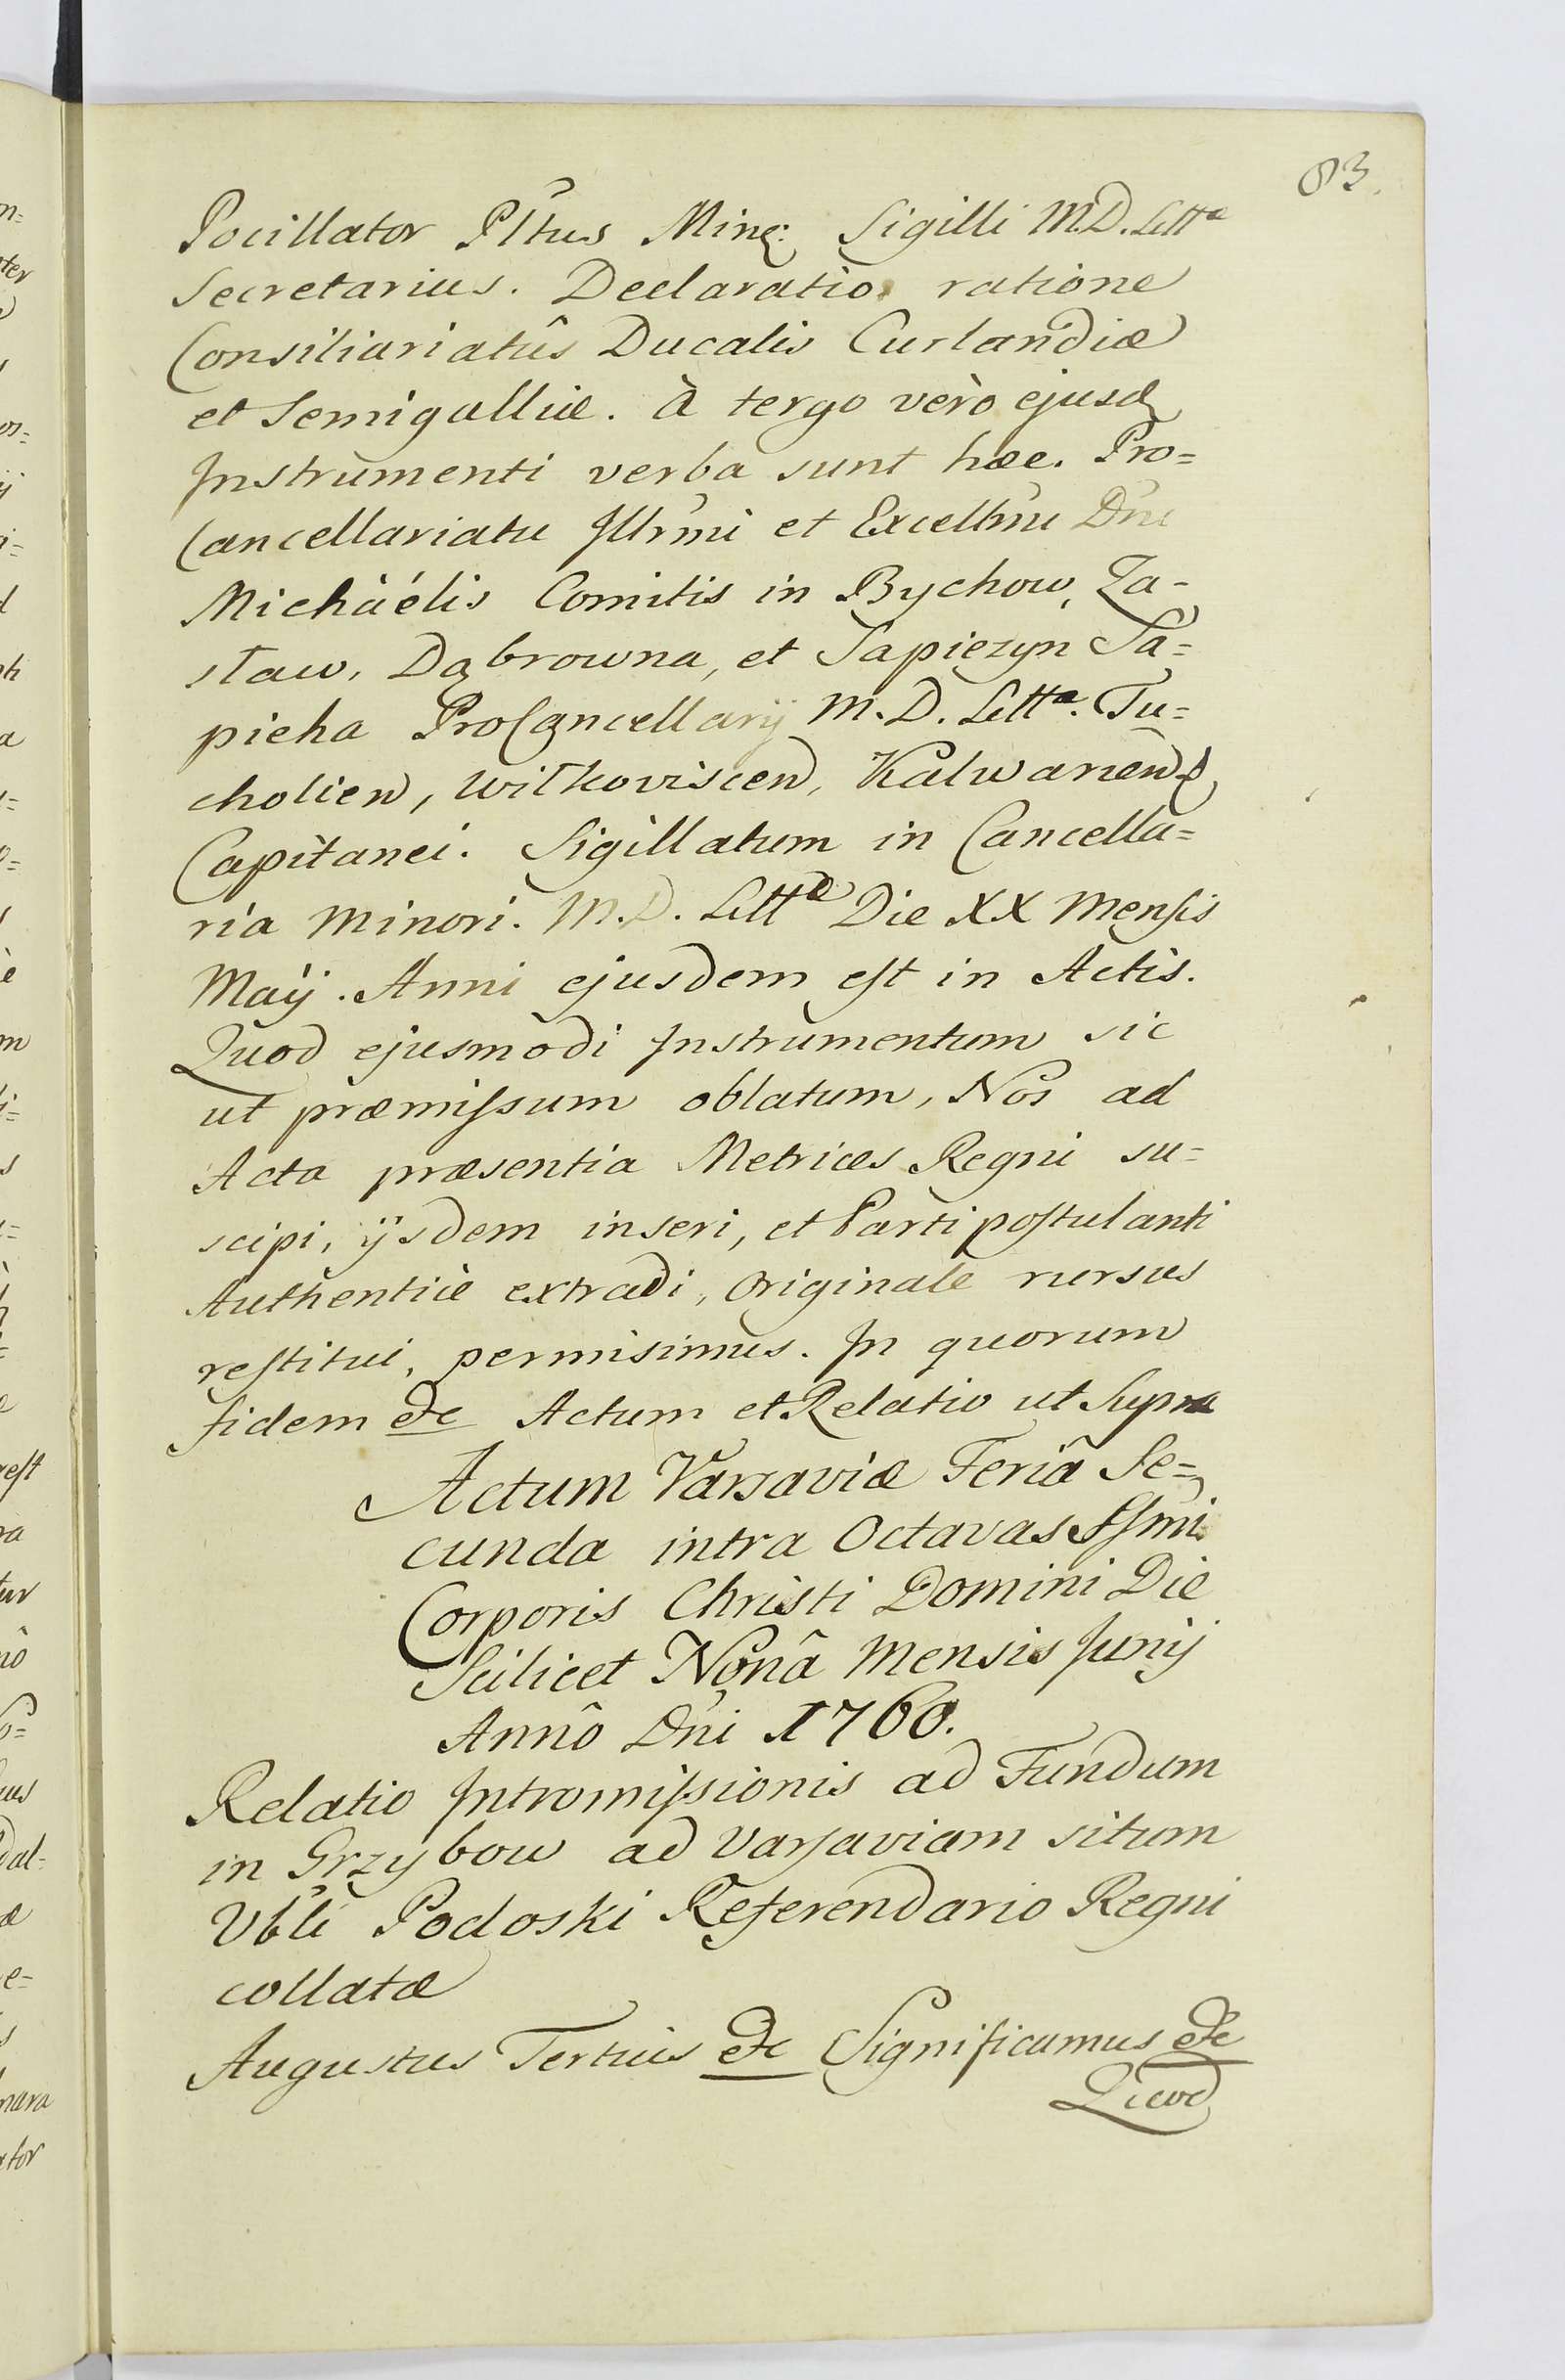 83.
Pocillator Pltus Minq: Sigilli M.D. Litt^a
Secretarius. Declaratio ratione
Consiliariatûs Ducalis Curlandiæ
et Semigalliæ. à tergo verò ejusd
Instrumenti verba sunt hæc. Pro=
Cancellariatu Illrmi et Excellmi Dni
Michäélis Comitis in Bychow, Za-
sław, Dąbrowna, et Sapiezyn Sa=
pieha ProCancellarij M.D. Litt^a. Tu=
cholien, Wiłkoviscen, Kalwarien
Capitanei. Sigillatum in Cancella=
ria Minori. M.D. Litt^æ Die XX Mensis
Maÿ. Anni ejusdem est in Actis.
Quod ejusmodi Instrumentum sic
ut præmissum oblatum, Nos ad
Acta præsentia Metrices Regni su=
scipi, ijsdem inseri, et Parti postulanti
Authenticè extradi, Originale rursus
restitui, permisimus. In quorum
fidem etc Actum et Relatio ut Supra
Actum Varsaviæ Feriâ Se=
cunda intra Octavas SSmi
Corporis Christi Domini Die
Scilicet Nonâ Mensis Junij
Annô Dni 1760.
Relatio Intromissionis ad Fundum
in Grzybow ad Varsaviam situm
Vbli Podoski Referendario Regni
collatæ
Augustus Tertius etc Significamus etc
Quod